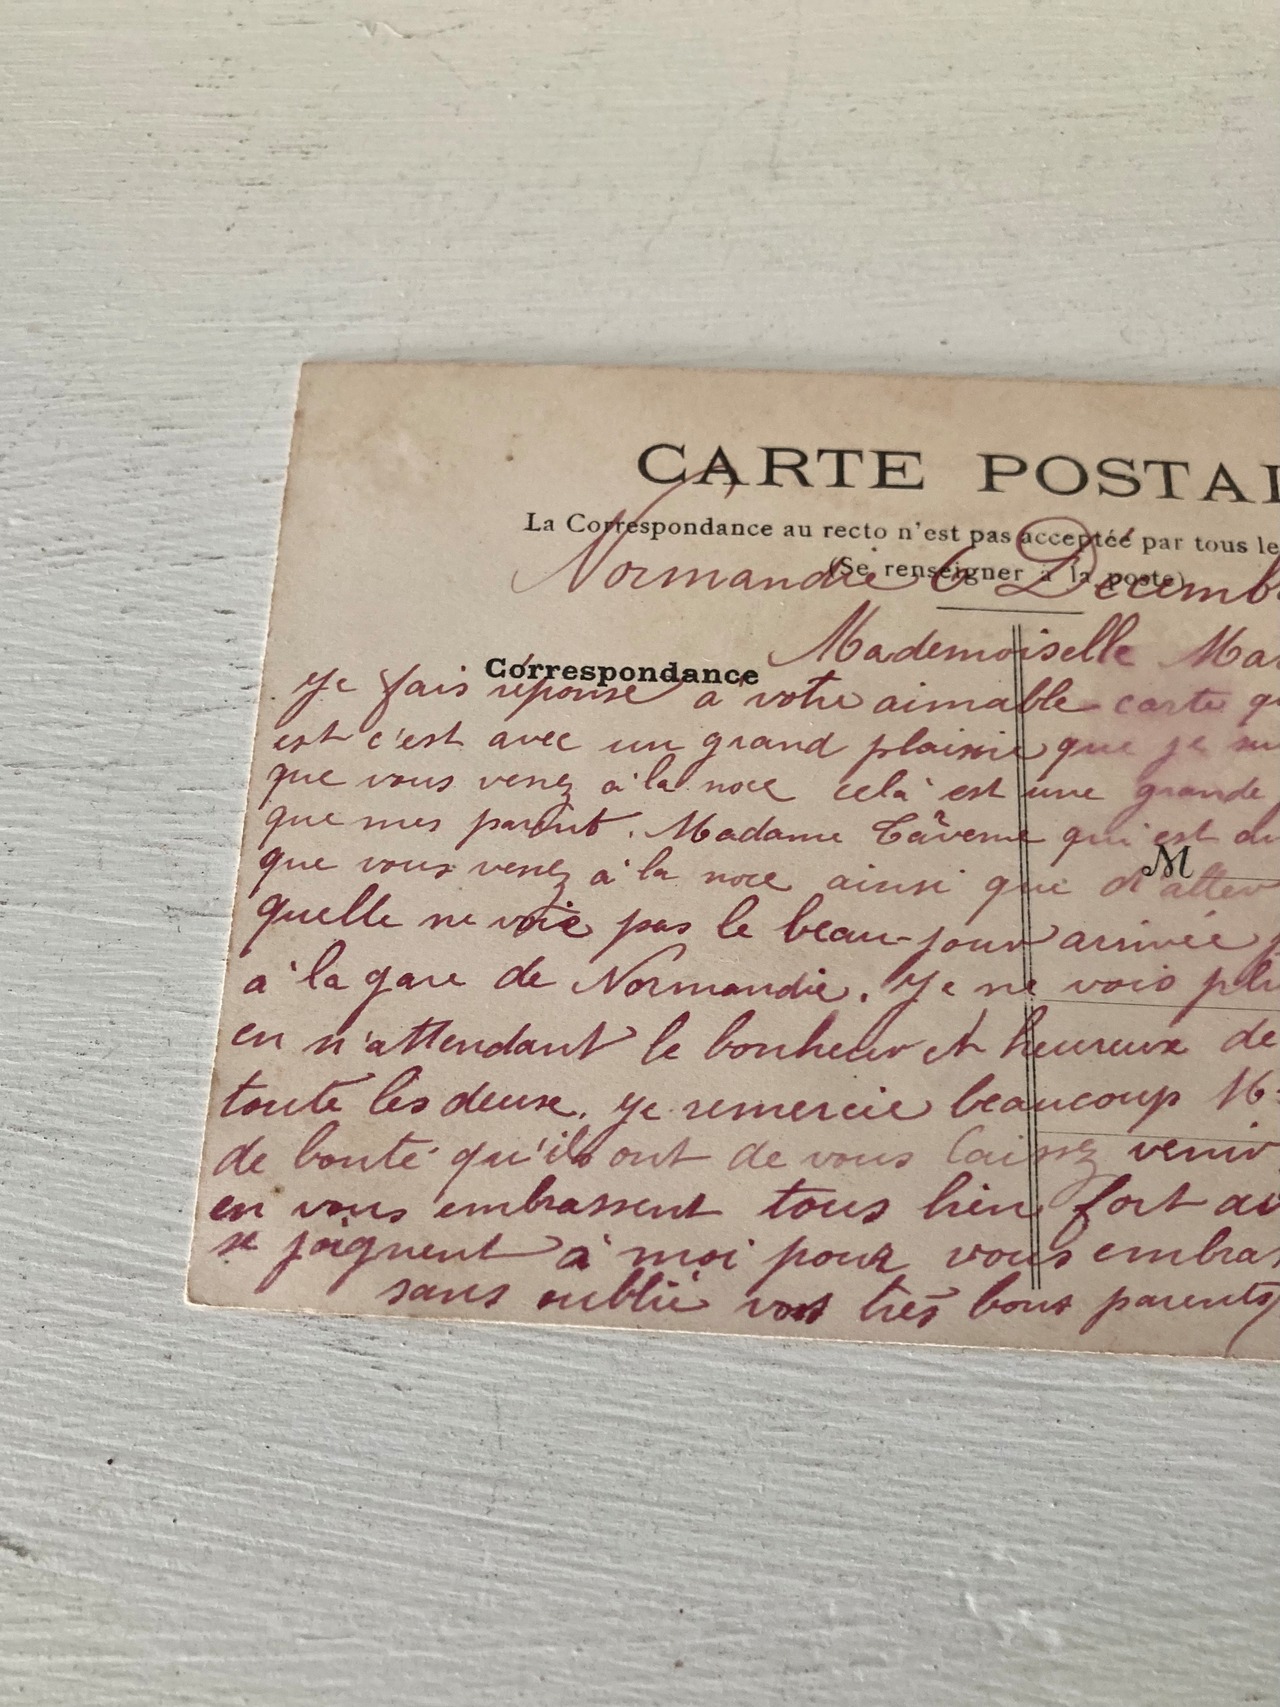 CARTE POSTAL
La Correspondance au recto n'est pas acceptée par tous le
(Se renseigner à la poste)
Normandie 6 Decemb
Correspondance
Mademoiselle Mar
Je fais réponse à votre aimable carte qu
est c'est avec un grand plaisir que je
que vous venez à la noce celà est une grande
que mes parent. Madame Tâverne qui est
que vous venez à la noce ainsi que
M
quelle ne voie pas le beau-jour arrivée
à la gare de Normandie. Je ne vois plu
en n'attendant le bonheur et heureux de
toute les deux. je remercie beaucoup
de bonté qu'ils ont de vous laissez venir
en vous embrassent tous bien fort
se joignent à moi pour vous embra
sans oublié vos très bons parents